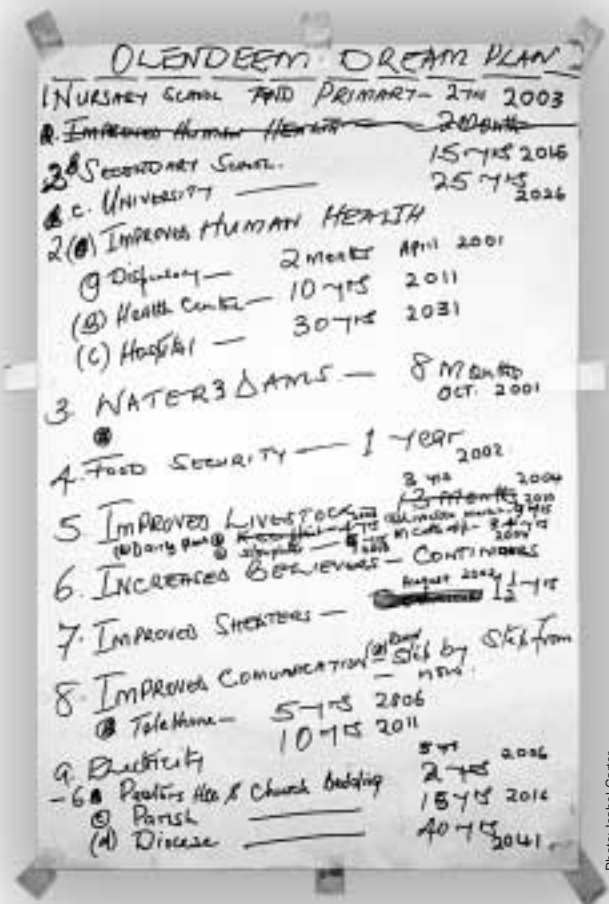 OLENDEEM DREAM PLAN
1 NURSARY SCHOOL AND PRIMARY - 2003
2. IMPROVED HUMAN HEALTH 2 Months
B SECONDARY SCHOOL. 15 yrs 2016
C. UNIVERSITY 25 yrs 2026
2 IMPROVED HUMAN HEALTH
Dispensary - 2 months April 2001
(B) Health Centre - 10 yrs 2011
(C) Hospital - 30 yrs 2031
3. WATER 3 DAMS. - 8 Months
OCT. 2001
4. FOOD SECURITY - 1 year
2002
3 yrs 2004
5 IMPROVED LIVESTOCK
6. INCREASED BELIEVERS - CONTINUOUS
August 2002
7. IMPROVED SHELTERS - 1 1/2 yrs
8. IMPROVED COMUNICATION - Step by Step from
now.
Telephone - 5 yrs 2006
10 yrs 2011
9. Electricity 5 yrs 2006
- 6 Pastors Hse & Church 2 yrs
Parish 15 yrs 2016
(d) Diocese 40 yrs
2041